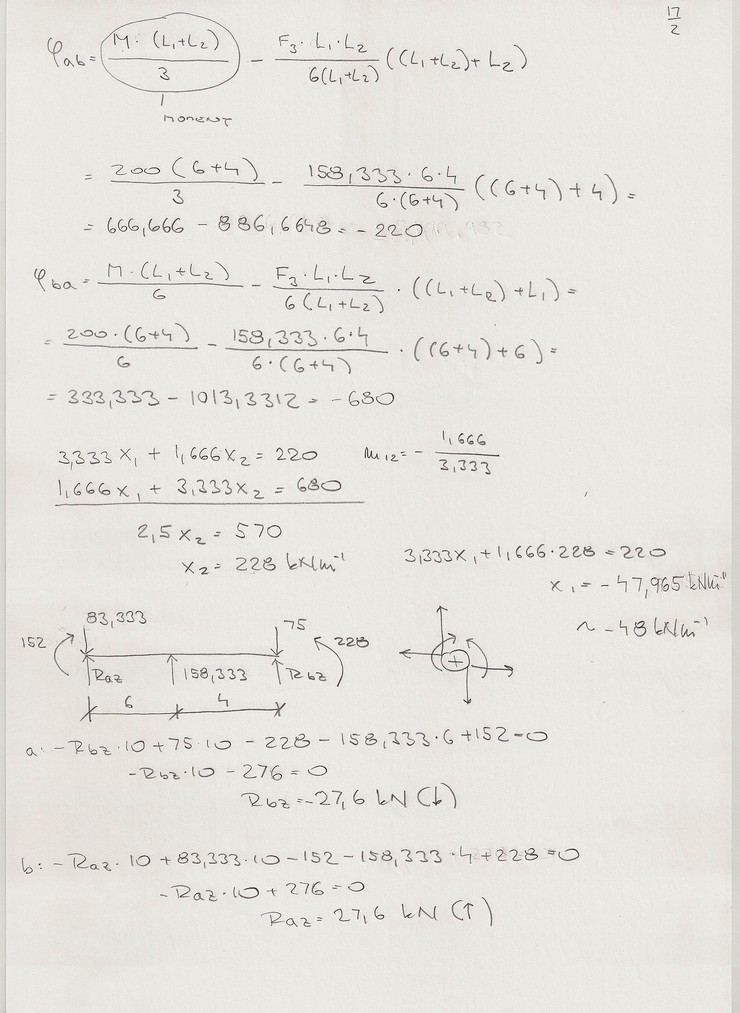 17/2
φab = M·(L1+L2)/3 − F3·L1·L2/6(L1+L2) ((L1+L2)+L2)
MOMENT
= 200(6+4)/3 − 158,333·6·4/6·(6+4) ((6+4)+4) =
= 666,666 − 886,6648 = −220
φba = M·(L1+L2)/6 − F3·L1·L2/6(L1+L2) · ((L1+L2)+L1) =
= 200·(6+4)/6 − 158,333·6·4/6·(6+4) · ((6+4)+6) =
= 333,333 − 1013,3312 = −680
3,333x1 + 1,666x2 = 220 m12 = − 1,666/3,333
1,666x1 + 3,333x2 = 680
2,5x2 = 570
x2 = 228 kNm⁻¹
3,333x1 + 1,666·228 = 220
x1 = −47,965 kNm⁻¹
~ −48 kNm⁻¹
83,333 75
152 228
Raz 158,333 Rbz
6 4
+
a: −Rbz·10 + 75·10 − 228 − 158,333·6 + 152 = 0
−Rbz·10 − 276 = 0
Rbz = −27,6 kN (↓)
b: −Raz·10 + 83,333·10 − 152 − 158,333·4 + 228 = 0
−Raz·10 + 276 = 0
Raz = 27,6 kN (↑)